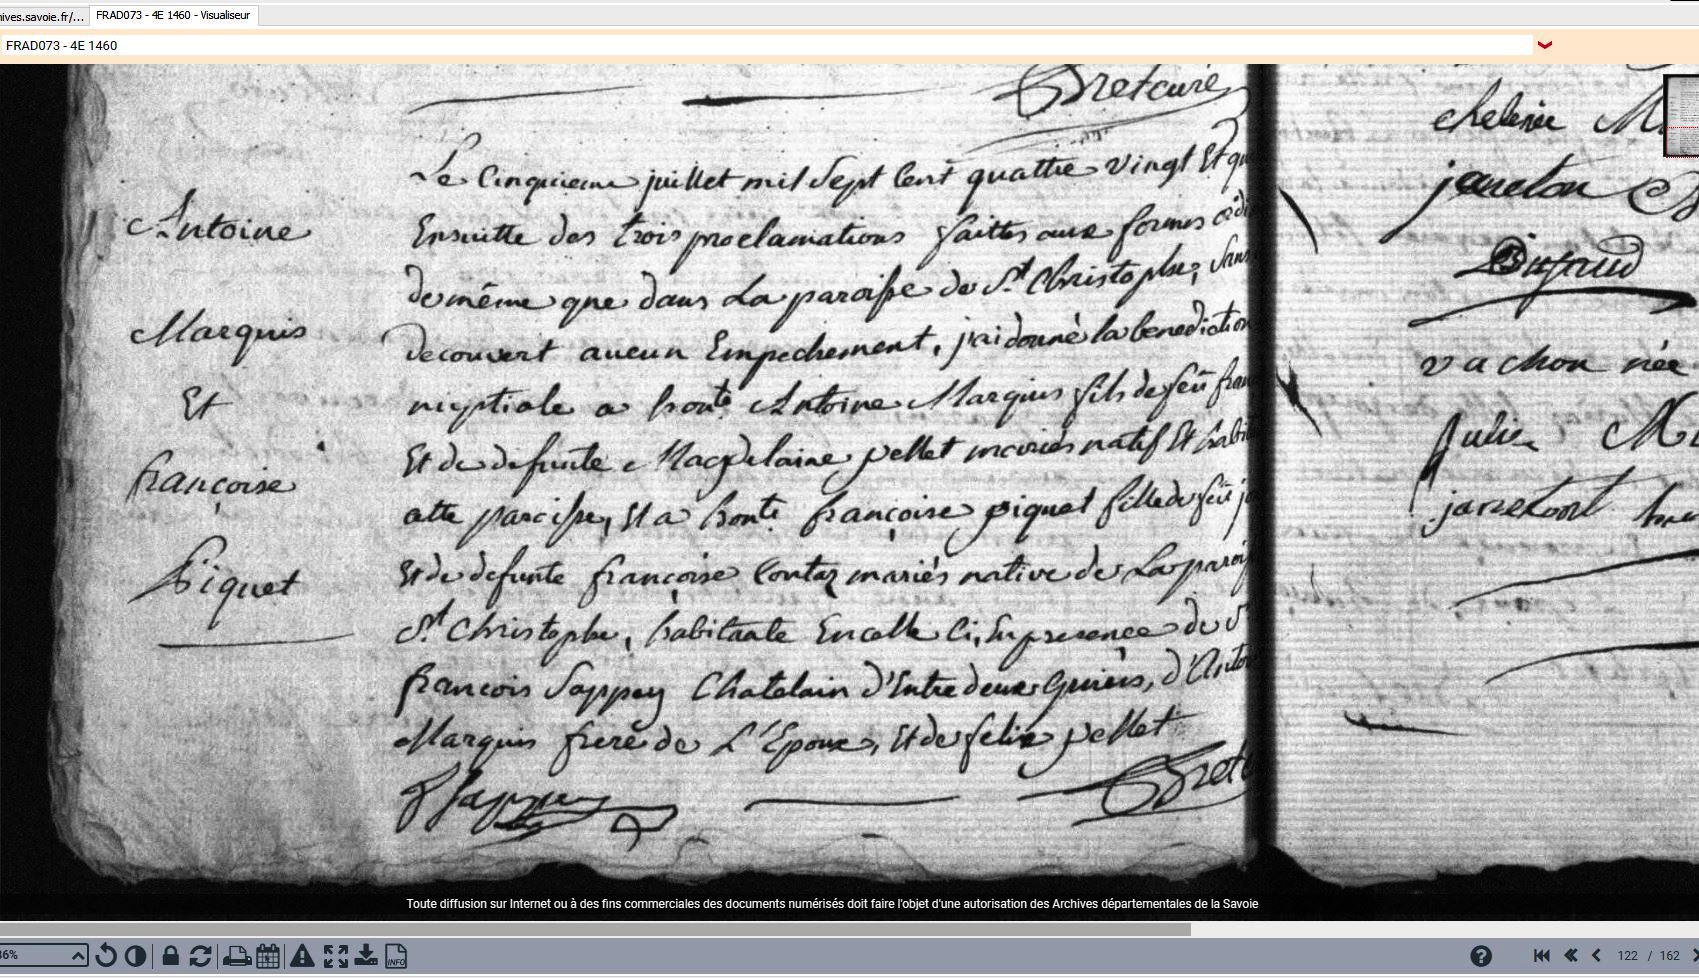 ives.savoie.fr/...
FRAD073 - 4E 1460 - Visualiseur
FRAD073 - 4E 1460
Bret curé
Le Cinquieme juillet mil Sept Cent quattre vingt Et qu
Ensuitte des trois proclamations faittes aux formes ordi
de même que dans La paroisse de St Christophe, Sans
decouvert aucun Empechement, j'ai donné la benediction
nuptiale a honte Antoine Marquis fils de feu fran
Et de defunte Magdelaine pellet mariés natif Et habit
cette paroisse, Et a honte françoise piquet fille de feu j
Et de defunte françoise Contaz mariés native de La parois
St Christophe, habitante En celle ci, En presence de Sr
françois Sappey Chatelain d'Entre deux Guiers, d'Anto
Marquis frere de L'Epoux, Et de felix pellet
fSappey
Bret c
Antoine
Marquis
Et
françoise
Piquet
chelenie M
janeton
Dufaud
vachon née
Julie M
Toute diffusion sur Internet ou à des fins commerciales des documents numérisés doit faire l'objet d'une autorisation des Archives départementales de la Savoie
36%
INFO
122 / 162